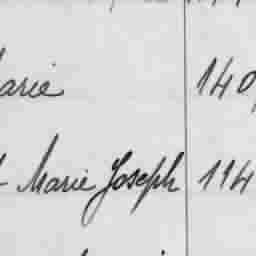 arie 140
Marie Joseph 114